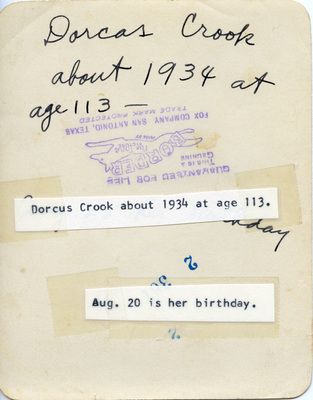 Dorcas Crook
about 1934 at
age 113 —
FOX COMPANY, SAN ANTONIO, TEXAS
TRADE MARK PROTECTED
THIS IS A
GENUINE
GUARANTEED FOR LIFE
Dorcus Crook about 1934 at age 113.
Aug. 20 is her birthday.
2